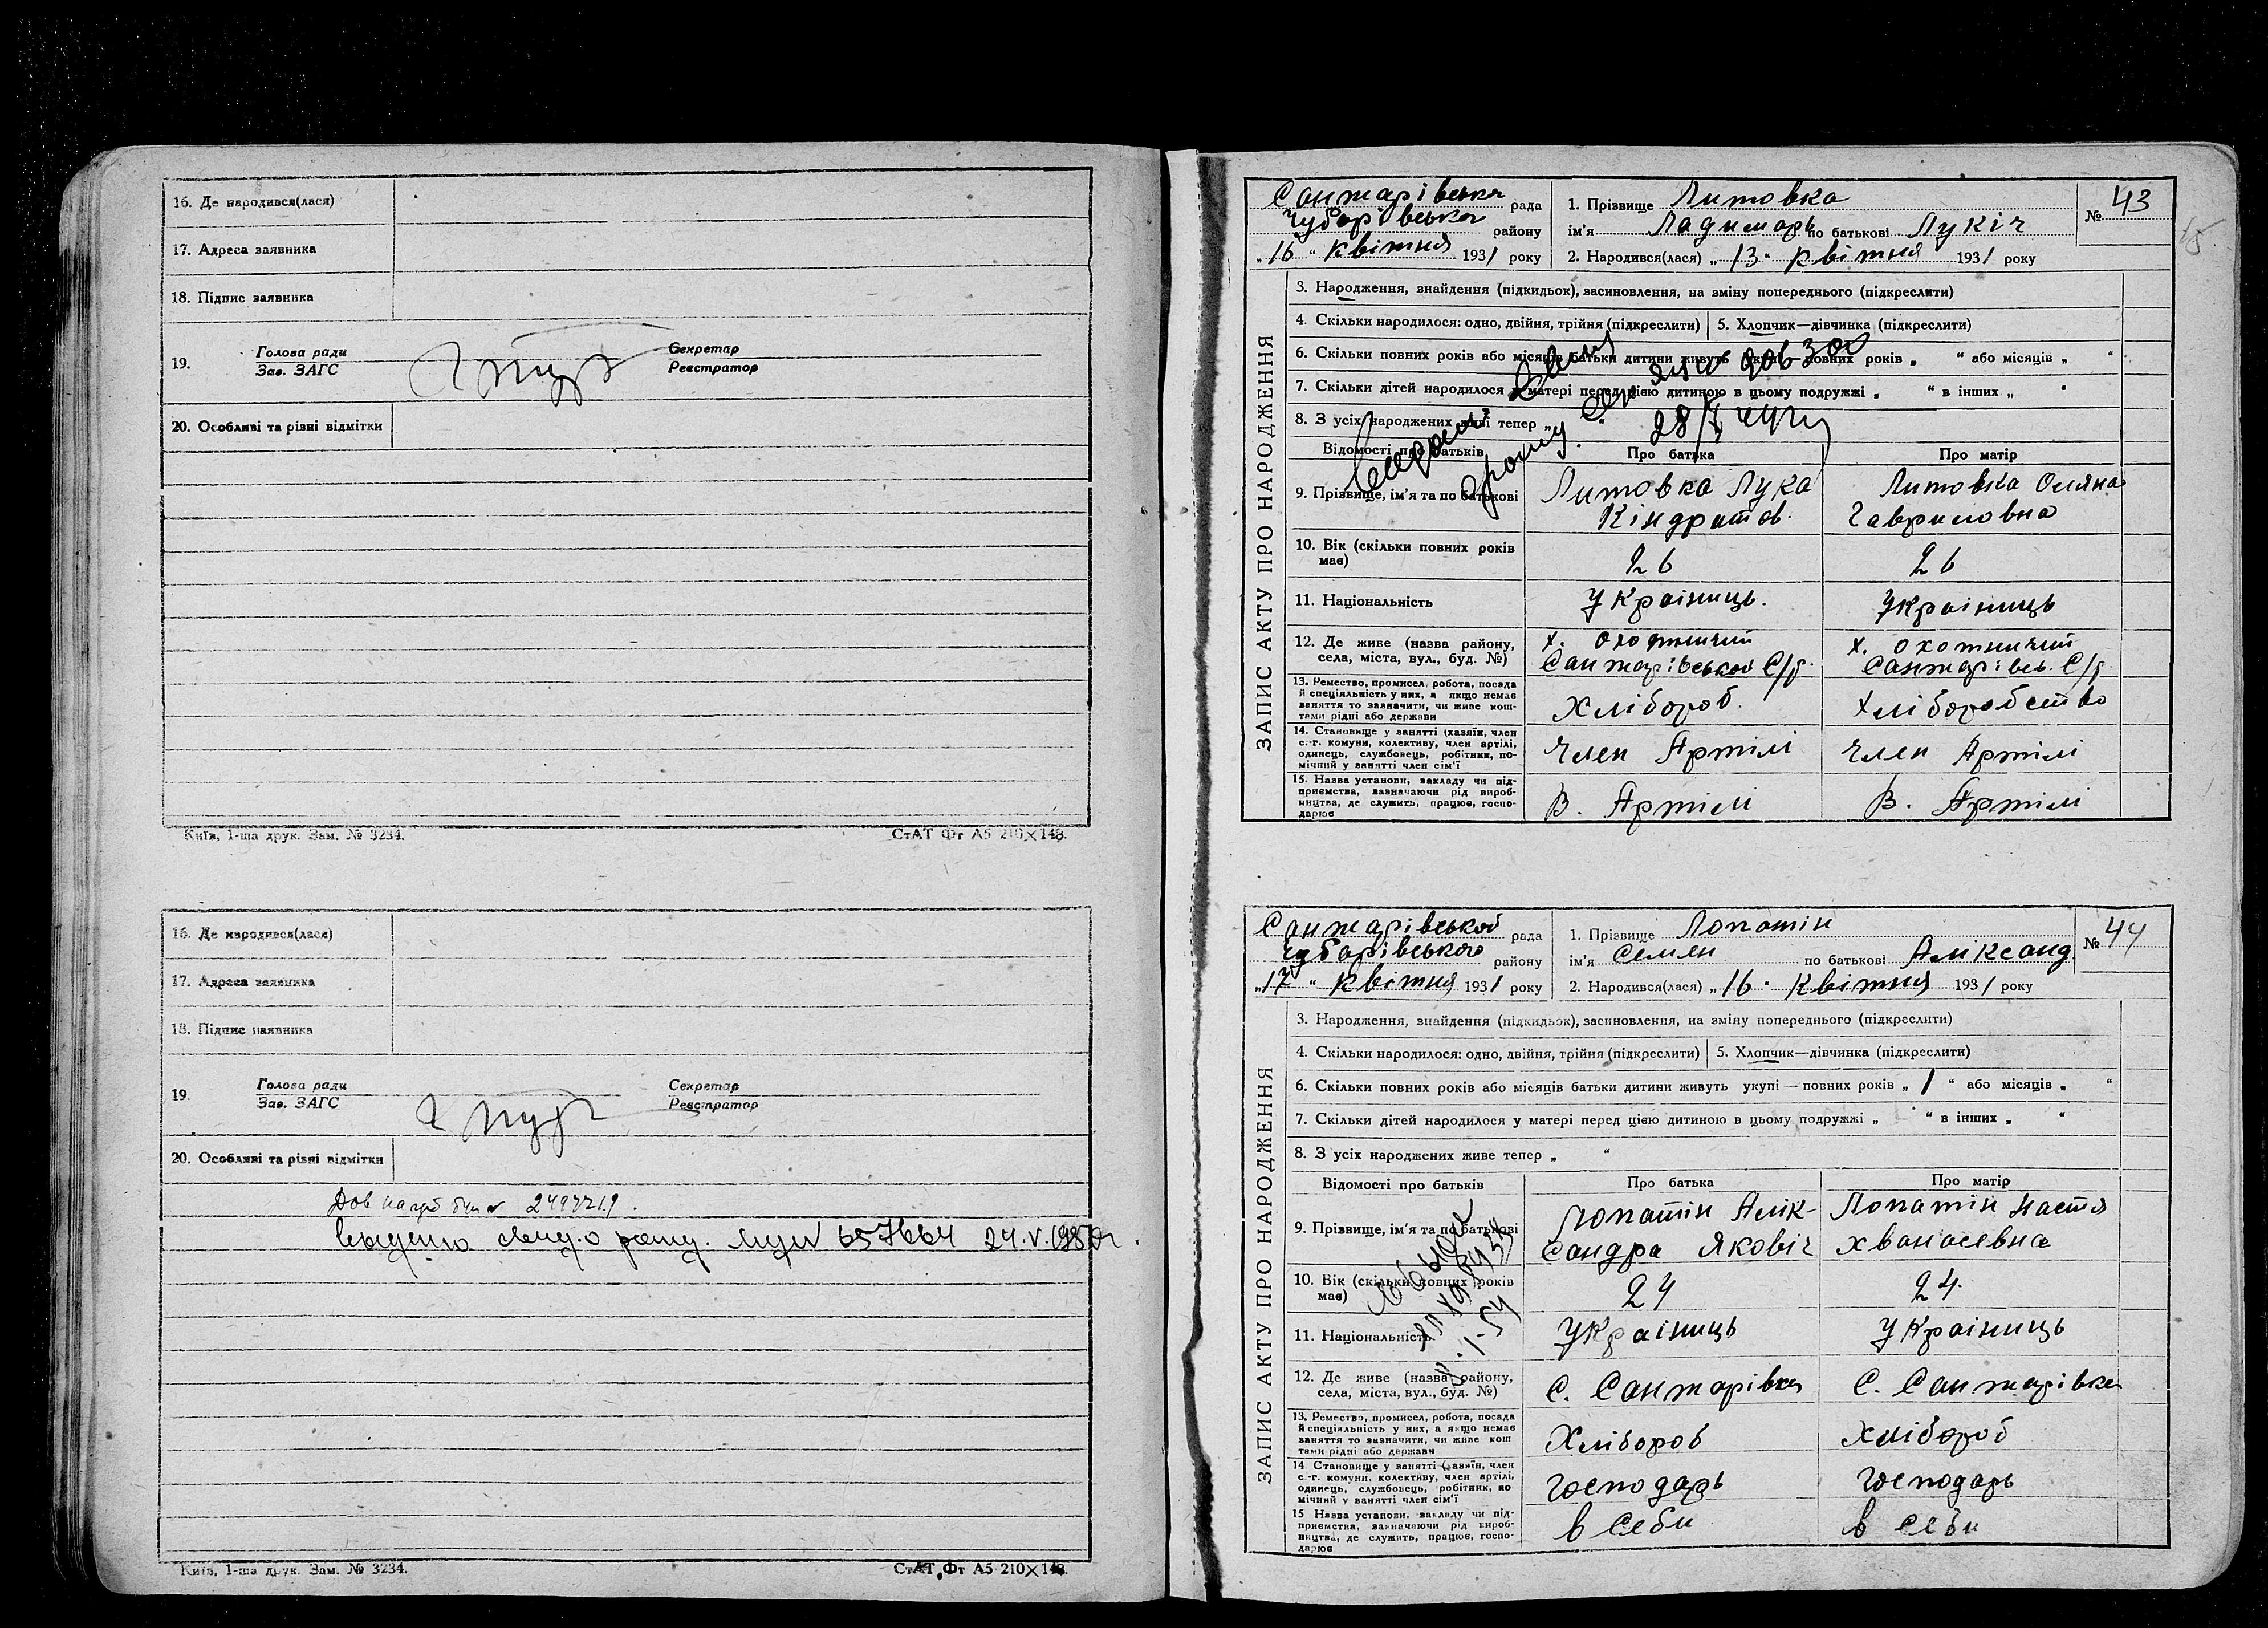 16. Де народився(лася)
17. Адреса заявника
18. Підпис заявника
19. Голова ради
Зав. ЗАГС
Секретар
Реєстратор
20. Особливі та різні відмітки
Київ, 1-ша друк. Зам. № 3234.
СтАТ Фт А5 210×148.
16. Де народився(лася)
17. Адреса заявника
18. Підпис заявника
19. Голова ради
Зав. ЗАГС
Секретар
Реєстратор
20. Особливі та різні відмітки
24.V.1987г.
Київ, 1-ша друк. Зам. № 3234.
СтАТ Фт А5 210×148.
15
Сантарівська рада
Чубарівська району
„16“ квітня 1931 року
1. Прізвище Литовка
ім'я Ладимарь по батькові Лукіч
2. Народився(лася) „13“ квітня 1931 року
№ 43
ЗАПИС АКТУ ПРО НАРОДЖЕННЯ
3. Народження, знайдення (підкидьок), засиновлення, на зміну попереднього (підкреслити)
4. Скільки народилося: одно, двійня, трійня (підкреслити) 5. Хлопчик—дівчинка (підкреслити)
6. Скільки повних років або місяців батьки дитини живуть укупі — повних років „ “ або місяців „ “
7. Скільки дітей народилося у матері перед цією дитиною в цьому подружжі „ “ в інших „ “
8. З усіх народжених живе тепер „ “
Відомості про батьків Про батька Про матір
9. Прізвище, ім'я та по батькові
Литовка Лука
Кіндратов.
Литовка Оляна
Гавриловна
10. Вік (скільки повних років
має)
26
26
11. Національність
Українць.
Українць
12. Де живе (назва району,
села, міста, вул., буд. №)
х. Охотничий
Сантарівськой С/р.
х. Охотничий
Сантарівсь. С/р
13. Ремество, промисел, робота, посада
й спеціяльність у них, а якщо немає
заняття то зазначити, чи живе кош-
тами рідні або держави
Хлібороб.
Хліборобство
14. Становище у занятті (хазяїн, член
с.-г. комуни, колективу, член артілі,
одинець, службовець, робітник, по-
мічний у занятті член сім'ї
Член Артілі
Член Артілі
15. Назва установи, закладу чи під-
приємства, зазначаючи рід вироб-
ництва, де служить, працює, госпо-
дарює
В. Артілі
В. Артілі
Сантарівськой рада
Чубарівського району
„17“ квітня 1931 року
1. Прізвище Лопатін
ім'я Семен по батькові Аликсанд
2. Народився(лася) „16“ квітня 1931 року
№ 44
ЗАПИС АКТУ ПРО НАРОДЖЕННЯ
3. Народження, знайдення (підкидьок), засиновлення, на зміну попереднього (підкреслити)
4. Скільки народилося: одно, двійня, трійня (підкреслити) 5. Хлопчик—дівчинка (підкреслити)
6. Скільки повних років або місяців батьки дитини живуть укупі — повних років „ 1 “ або місяців „ “
7. Скільки дітей народилося у матері перед цією дитиною в цьому подружжі „ “ в інших „ “
8. З усіх народжених живе тепер „ “
Відомості про батьків Про батька Про матір
9. Прізвище, ім'я та по батькові
Лопатін Алік-
сандра Яковіч
Лопатін Настя
Хванасевна
10. Вік (скільки повних років
має)
24
24.
11. Національність
Українць
Українць
12. Де живе (назва району,
села, міста, вул., буд. №)
С. Сантарівка
С. Сантарівка
13. Ремество, промисел, робота, посада
й спеціяльність у них, а якщо немає
заняття то зазначити, чи живе кош
тами рідні або держави
Хлібороб
Хлібороб
14 Становище у занятті (хазяїн, член
с.-г. комуни, колективу, член артілі,
одинець, службовець, робітник, по
мічний у занятті член сім'ї
Господарь
Господарь
15 Назва установи, закладу чи під-
приємства, зазначаючи рід вироб-
ництва, де служить, працює, госпо-
дарює
в себи
в себи